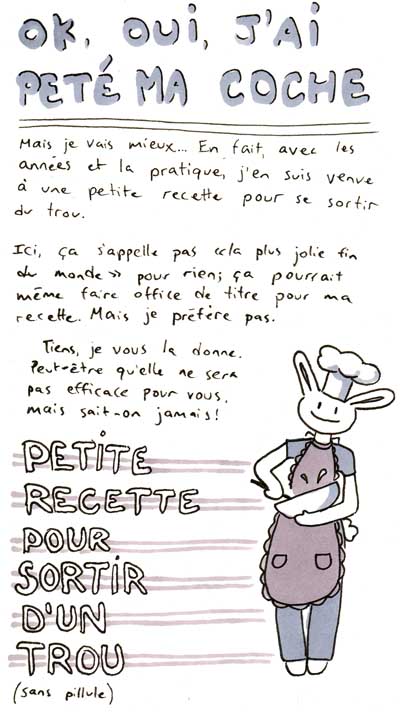 OK, OUI, J'AI
PETÉ MA COCHE
Mais je vais mieux... En fait, avec les
années et la pratique, j'en suis venue
à une petite recette pour se sortir
du trou.
Ici, ça s'appelle pas «la plus jolie fin
du monde» pour rien; ça pourrait
même faire office de titre pour ma
recette. Mais je préfère pas.
Tiens, je vous la donne.
Peut-être qu'elle ne sera
pas efficace pour vous,
mais sait-on jamais!
PETITE
RECETTE
POUR
SORTIR
D'UN
TROU
(sans pillule)